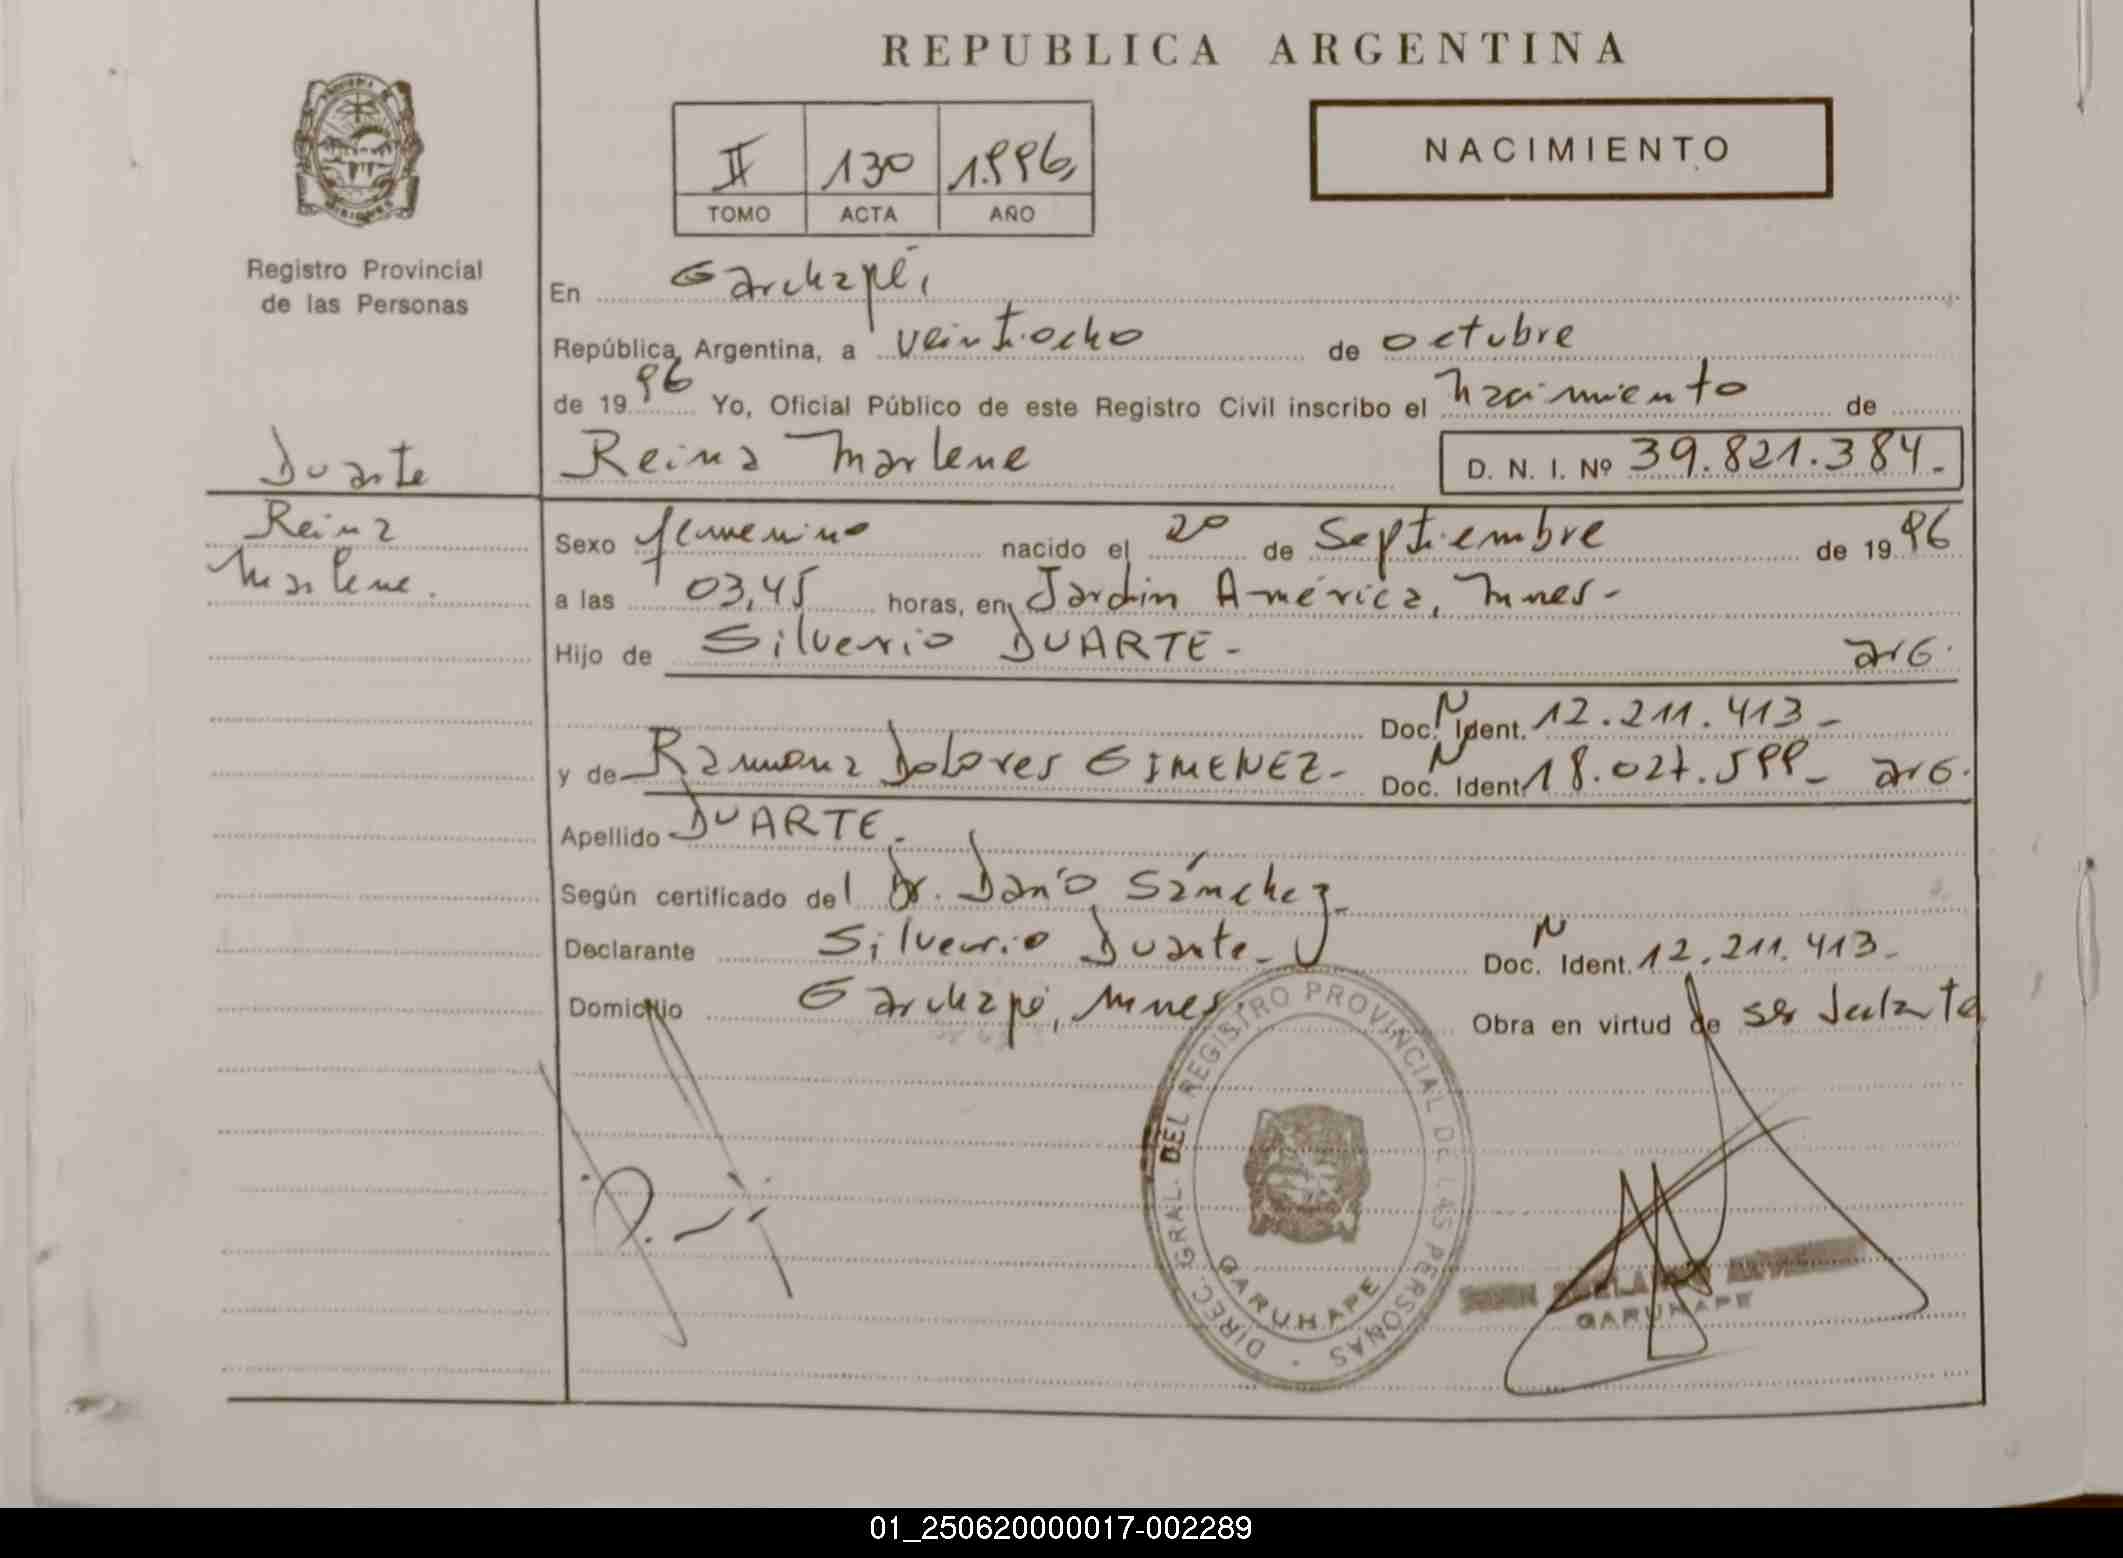 REPUBLICA ARGENTINA
II 130 1.996,
TOMO ACTA AÑO
NACIMIENTO
Registro Provincial
de las Personas
En Garuhapé,
República Argentina, a veintiocho de octubre
de 1996 Yo, Oficial Público de este Registro Civil inscribo el nacimiento de
Reina Marlene D. N. I. Nº 39.821.384.-
Duarte
Reina
Marlene.
Sexo femenino nacido el 20 de Septiembre de 1996
a las 03,45 horas, en Jardin América, Mnes-
Hijo de Silverio DUARTE- arG.
Doc. N Ident. 12.211.413-
y de Ramona Dolores GIMENEZ- Doc. N Ident. 18.027.599- arG.
Apellido DUARTE.
Según certificado del Dr. Darío Sánchez-
Declarante Silverio Duarte- Doc. N Ident. 12.211.413-
Domicilio Garuhapé, Mnes. Obra en virtud de ser
DIREC. GRAL. DEL REGISTRO PROVINCIAL DE LAS PERSONAS
GARUHAPE
GARUHAPE
01_250620000017-002289